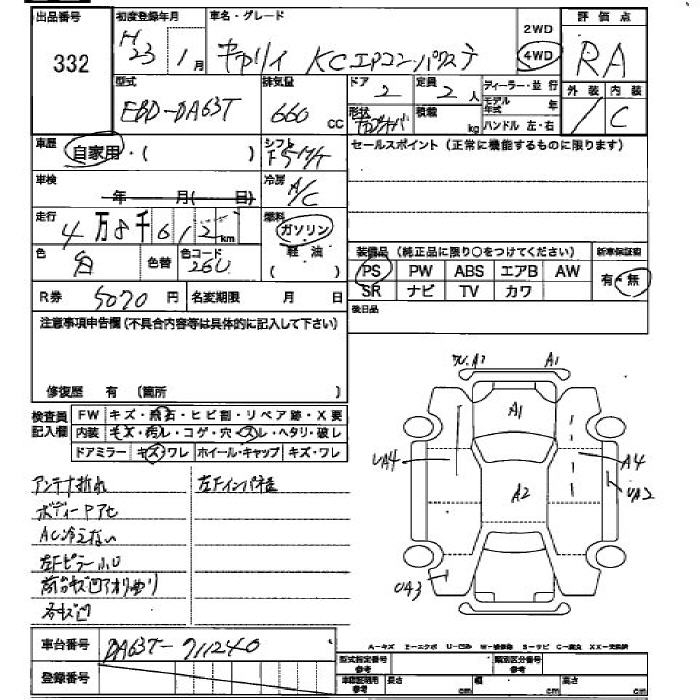 出品番号 初度登録年月 車名・グレード 2WD 評価点
332 H23 1月 キャリィ KCエアコンパワステ 4WD RA
型式 排気量 ドア 定員 ディーラー・並行 外装 内装
EBD-DA63T 660 CC 2 2人 モデル年式 年 1 C
形状 積載 kg ハンドル 左・右
車歴 自家用・( ) シフト F5 セールスポイント(正常に機能するものに限ります)
車検 年 月(日) 冷房 A/C
走行 4万8千612km 燃料 ガソリン
色 色替 色コード 26U 軽油 装備品(純正品に限り○をつけてください) 新車保証書
PS PW ABS エアB AW 有・無
SR ナビ TV カワ
R券 5070円 名変期限 月 日 後日品
注意事項申告欄(不具合内容等は具体的に記入して下さい)
修復歴 有 (箇所 )
検査員記入欄 FW キズ・飛石・ヒビ割・リペア跡・X要
内装 キズ・汚レ・コゲ・穴・スレ・ヘタリ・破レ
ドアミラー キズ・ワレ ホイール・キャップ キズ・ワレ
アンテナ折れ 左Fインパネ
ボディーP
AC冷えない
左Fピラー小U
荷台キズ凹アオリ曲り
各キズ凹
W.A2 A1
A1
UA4 A4
A2 UA2
UA3
A-キズ E-エクボ U-凹み W-補修跡 S-サビ C-腐食 XX-交換済
車台番号 DA63T-711240
登録番号
型式指定番号 参考 類別区分番号 参考
車庫証明用 参考 長さ cm 幅 cm 高さ cm